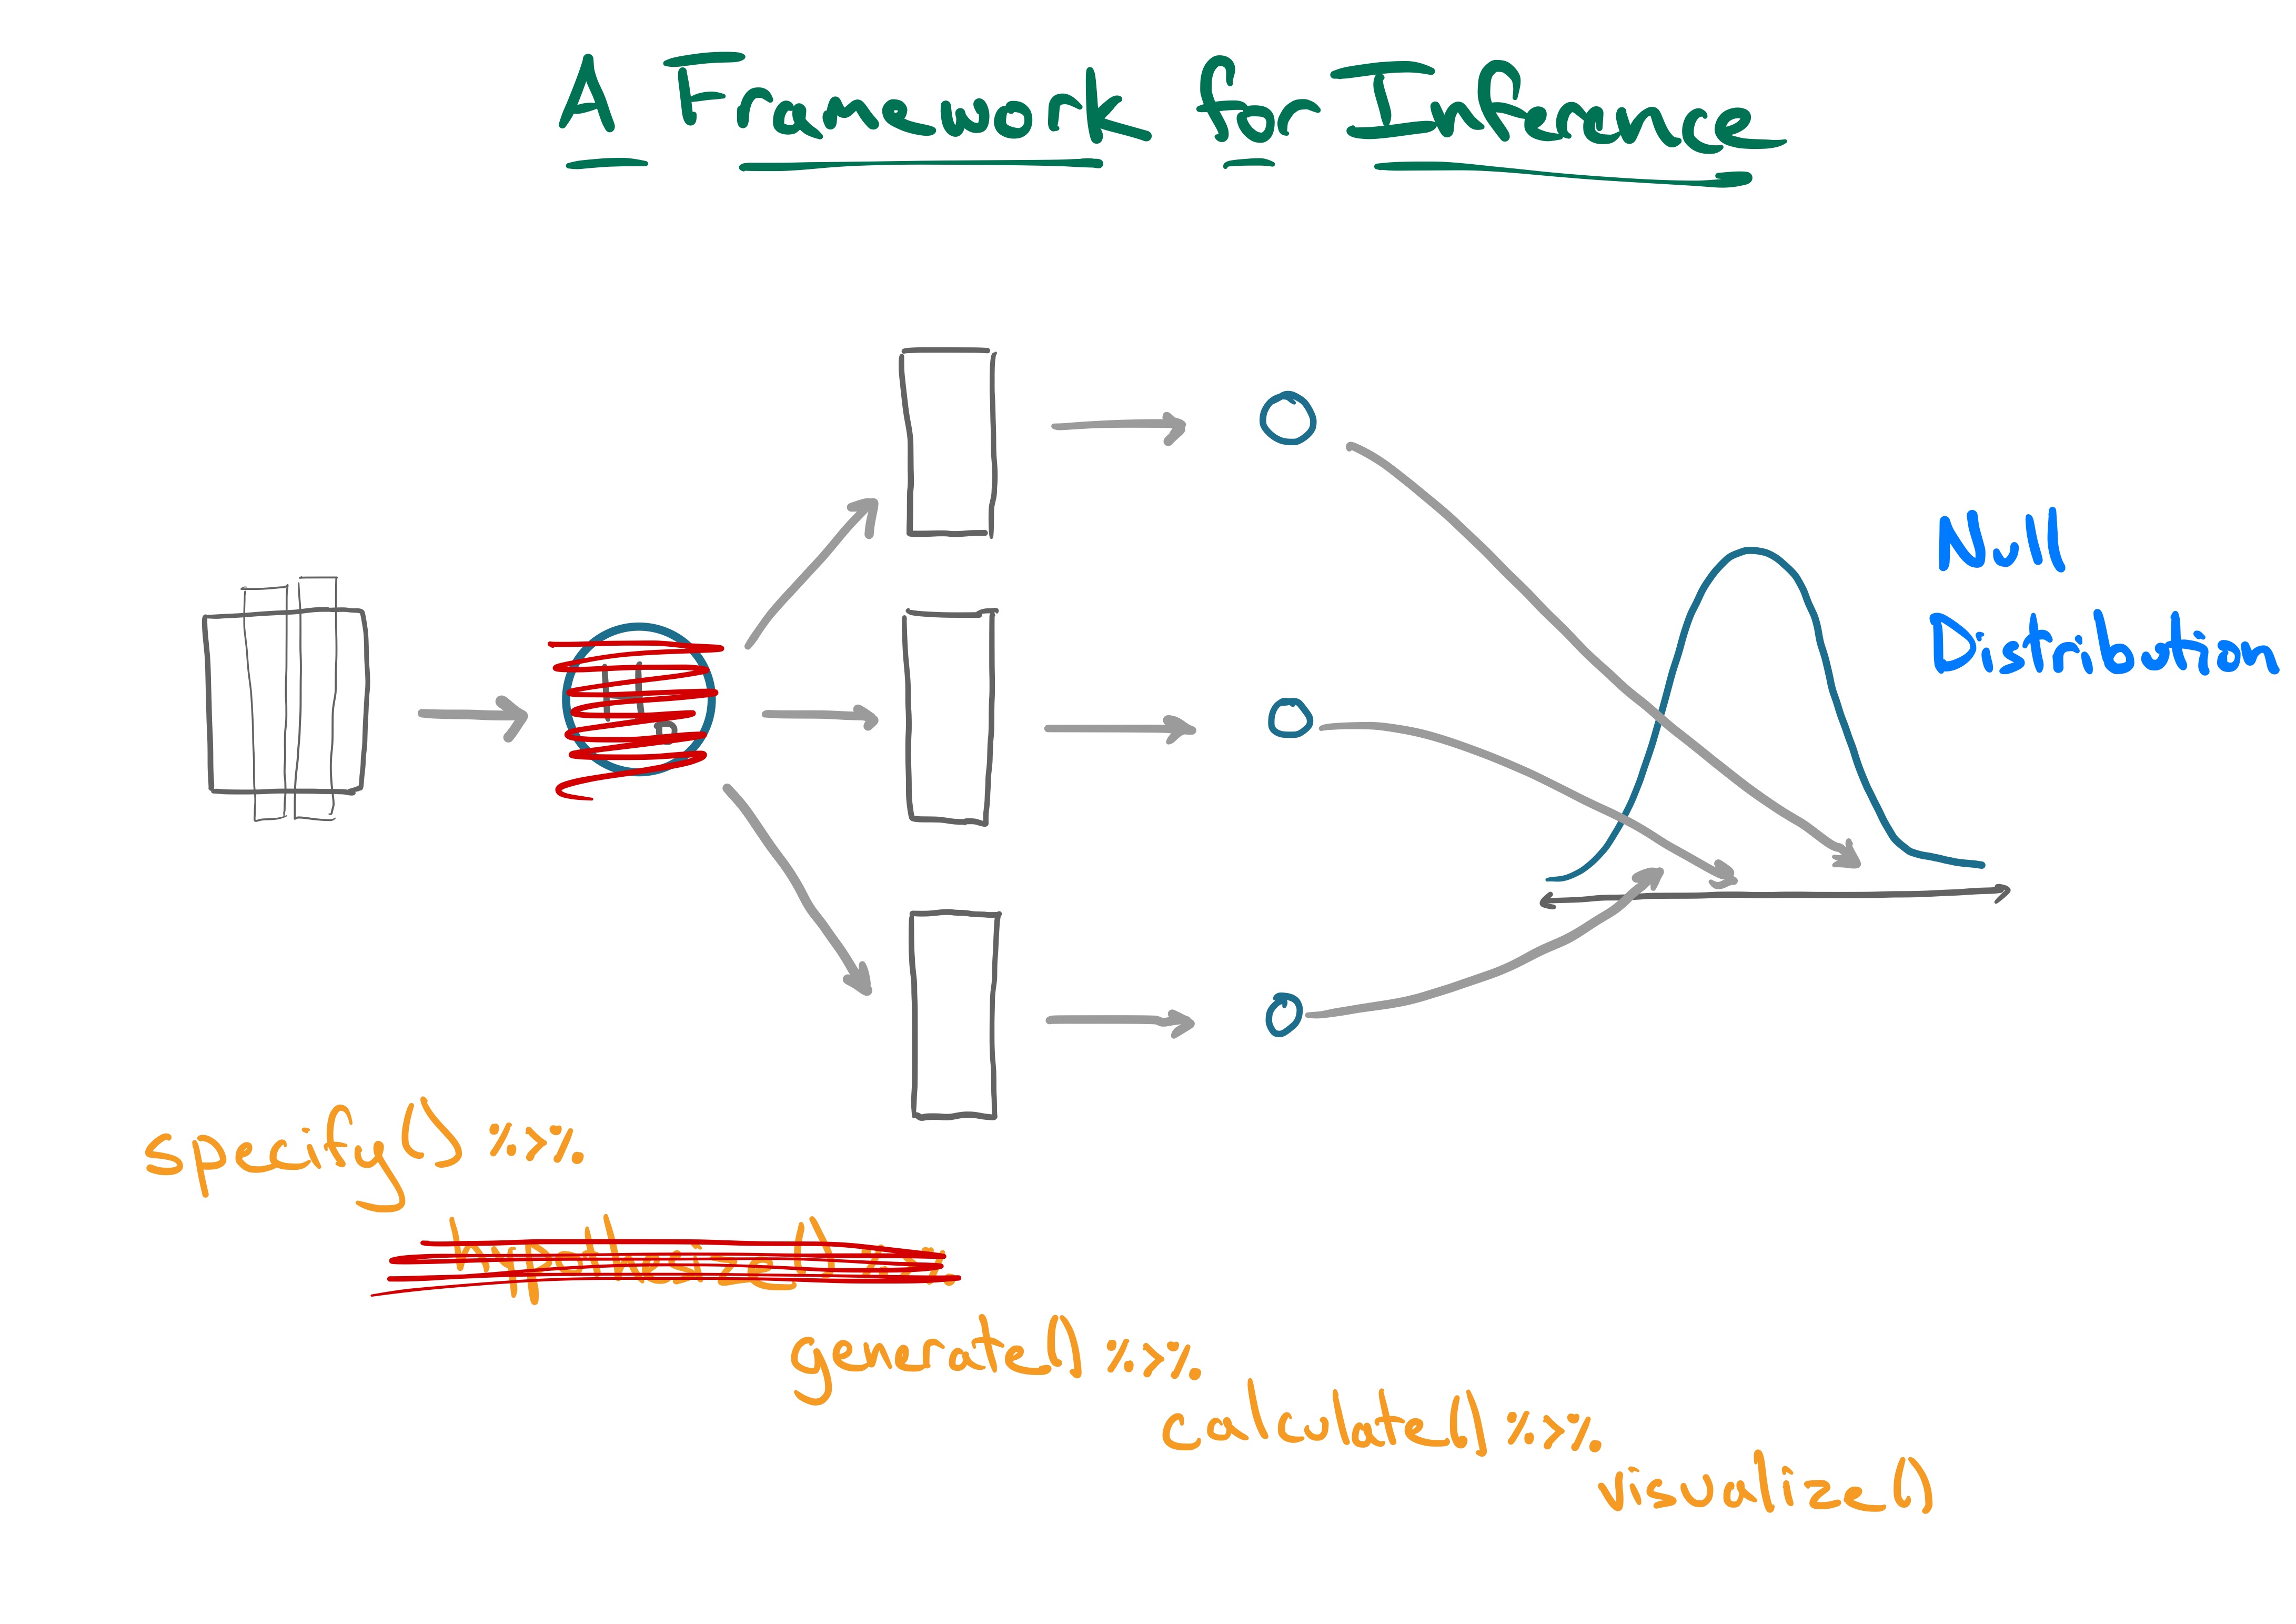 A Framework for Inference
Null
Distribution
H0
specify() %>%
hypothesize() %>%
generate() %>%
calculate() %>%
visualize()